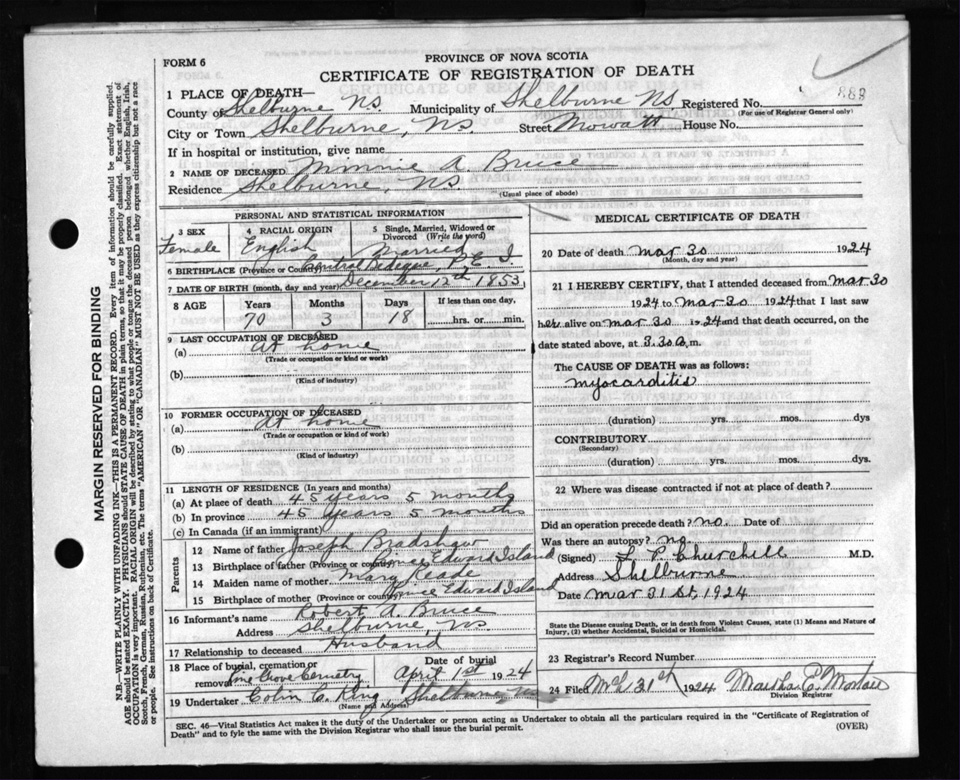 FORM 6
PROVINCE OF NOVA SCOTIA
CERTIFICATE OF REGISTRATION OF DEATH
888
1 PLACE OF DEATH—
County of Shelburne NS Municipality of Shelburne NS, Registered No.
(For use of Registrar General only)
City or Town Shelburne, NS Street Mowatt House No.
If in hospital or institution, give name
2 NAME OF DECEASED Minnie A. Bruce
Residence Shelburne, NS
(Usual place of abode)
PERSONAL AND STATISTICAL INFORMATION
3 SEX 4 RACIAL ORIGIN 5 Single, Married, Widowed or Divorced (Write the word)
Female English Married
6 BIRTHPLACE (Province or Country) Central Bedeque, P. E. I.
7 DATE OF BIRTH (month, day and year) December 12th 1853
8 AGE Years Months Days If less than one day,
70 3 18 hrs. or min.
9 LAST OCCUPATION OF DECEASED
(a) At home
(Trade or occupation or kind of work)
(b)
(Kind of industry)
10 FORMER OCCUPATION OF DECEASED
(a) At home
(Trade or occupation or kind of work)
(b)
(Kind of industry)
11 LENGTH OF RESIDENCE (In years and months)
(a) At place of death 45 years 5 months
(b) In province 45 years 5 months
(c) In Canada (if an immigrant)
Parents
12 Name of father Joseph Bradshaw
13 Birthplace of father (Province or country) Prince Edward Island
14 Maiden name of mother Mary Reade
15 Birthplace of mother (Province or country) Prince Edward Island
16 Informant's name Robert A. Bruce
Address Shelburne, NS
17 Relationship to deceased Husband
18 Place of burial, cremation or removal Pine Grove Cemetery Date of burial April 1st 1924
19 Undertaker Colin C. King Shelburne NS
(Name and Address)
MEDICAL CERTIFICATE OF DEATH
20 Date of death Mar 30 1924
(Month, day and year)
21 I HEREBY CERTIFY, that I attended deceased from Mar 30
1924 to Mar 30 1924 that I last saw
her alive on Mar 30 1924 and that death occurred, on the
date stated above, at 3.30 a.m.
The CAUSE OF DEATH was as follows:
Myocarditis
(duration) yrs. mos. dys
CONTRIBUTORY
(Secondary)
(duration) yrs. mos. dys
22 Where was disease contracted if not at place of death?
Did an operation precede death? no. Date of
Was there an autopsy? no.
(Signed) L P Churchill M.D.
Address Shelburne
Date Mar 31st, 1924
State the Disease causing Death, or in death from Violent Causes, state (1) Means and Nature of
Injury, (2) whether Accidental, Suicidal or Homicidal.
23 Registrar's Record Number
24 Filed Mch 31st 1924 Martha E.
Division Registrar
SEC. 46—Vital Statistics Act makes it the duty of the Undertaker or person acting as Undertaker to obtain all the particulars required in the "Certificate of Registration of
Death" and to fyle the same with the Division Registrar who shall issue the burial permit. (OVER)
MARGIN RESERVED FOR BINDING
N.B.—WRITE PLAINLY WITH UNFADING INK—THIS IS A PERMANENT RECORD. Every item of information should be carefully supplied.
AGE should be stated EXACTLY. PHYSICIANS should STATE CAUSE OF DEATH in plain terms, so that it may be properly classified. Exact statement of
OCCUPATION is very important. RACIAL ORIGIN will be described by stating to what people or tongue the deceased person belonged whether English, Irish,
Scotch, French, German, Russian, Ruthenian, etc. The terms "AMERICAN" OR "CANADIAN" MUST NOT BE USED as they express citizenship but not a race
or people. See instructions on back of Certificate.